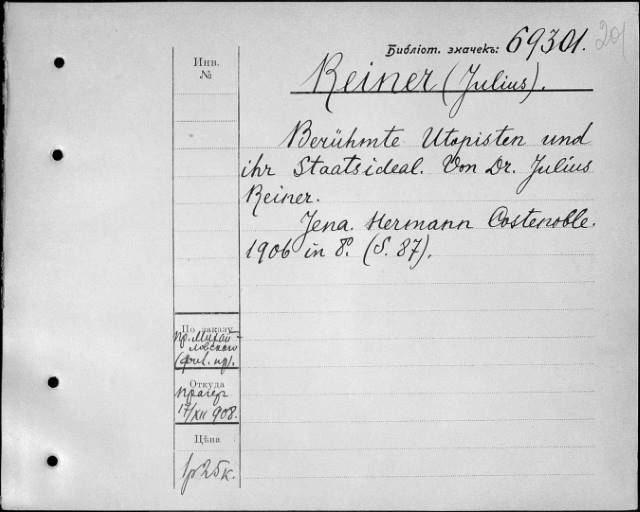 Библіот. значекъ: 69301.
20
Инв.
№
Reiner (Julius).
Berühmte Utopisten und
ihr Staatsideal. Von Dr. Julius
Reiner.
Jena. Hermann Costenoble.
1906 in 8º. (S. 87).
По заказу
пр. Михай-
ловского
Откуда
Прагер
17/XII 908.
Цѣна
1р 25 к.